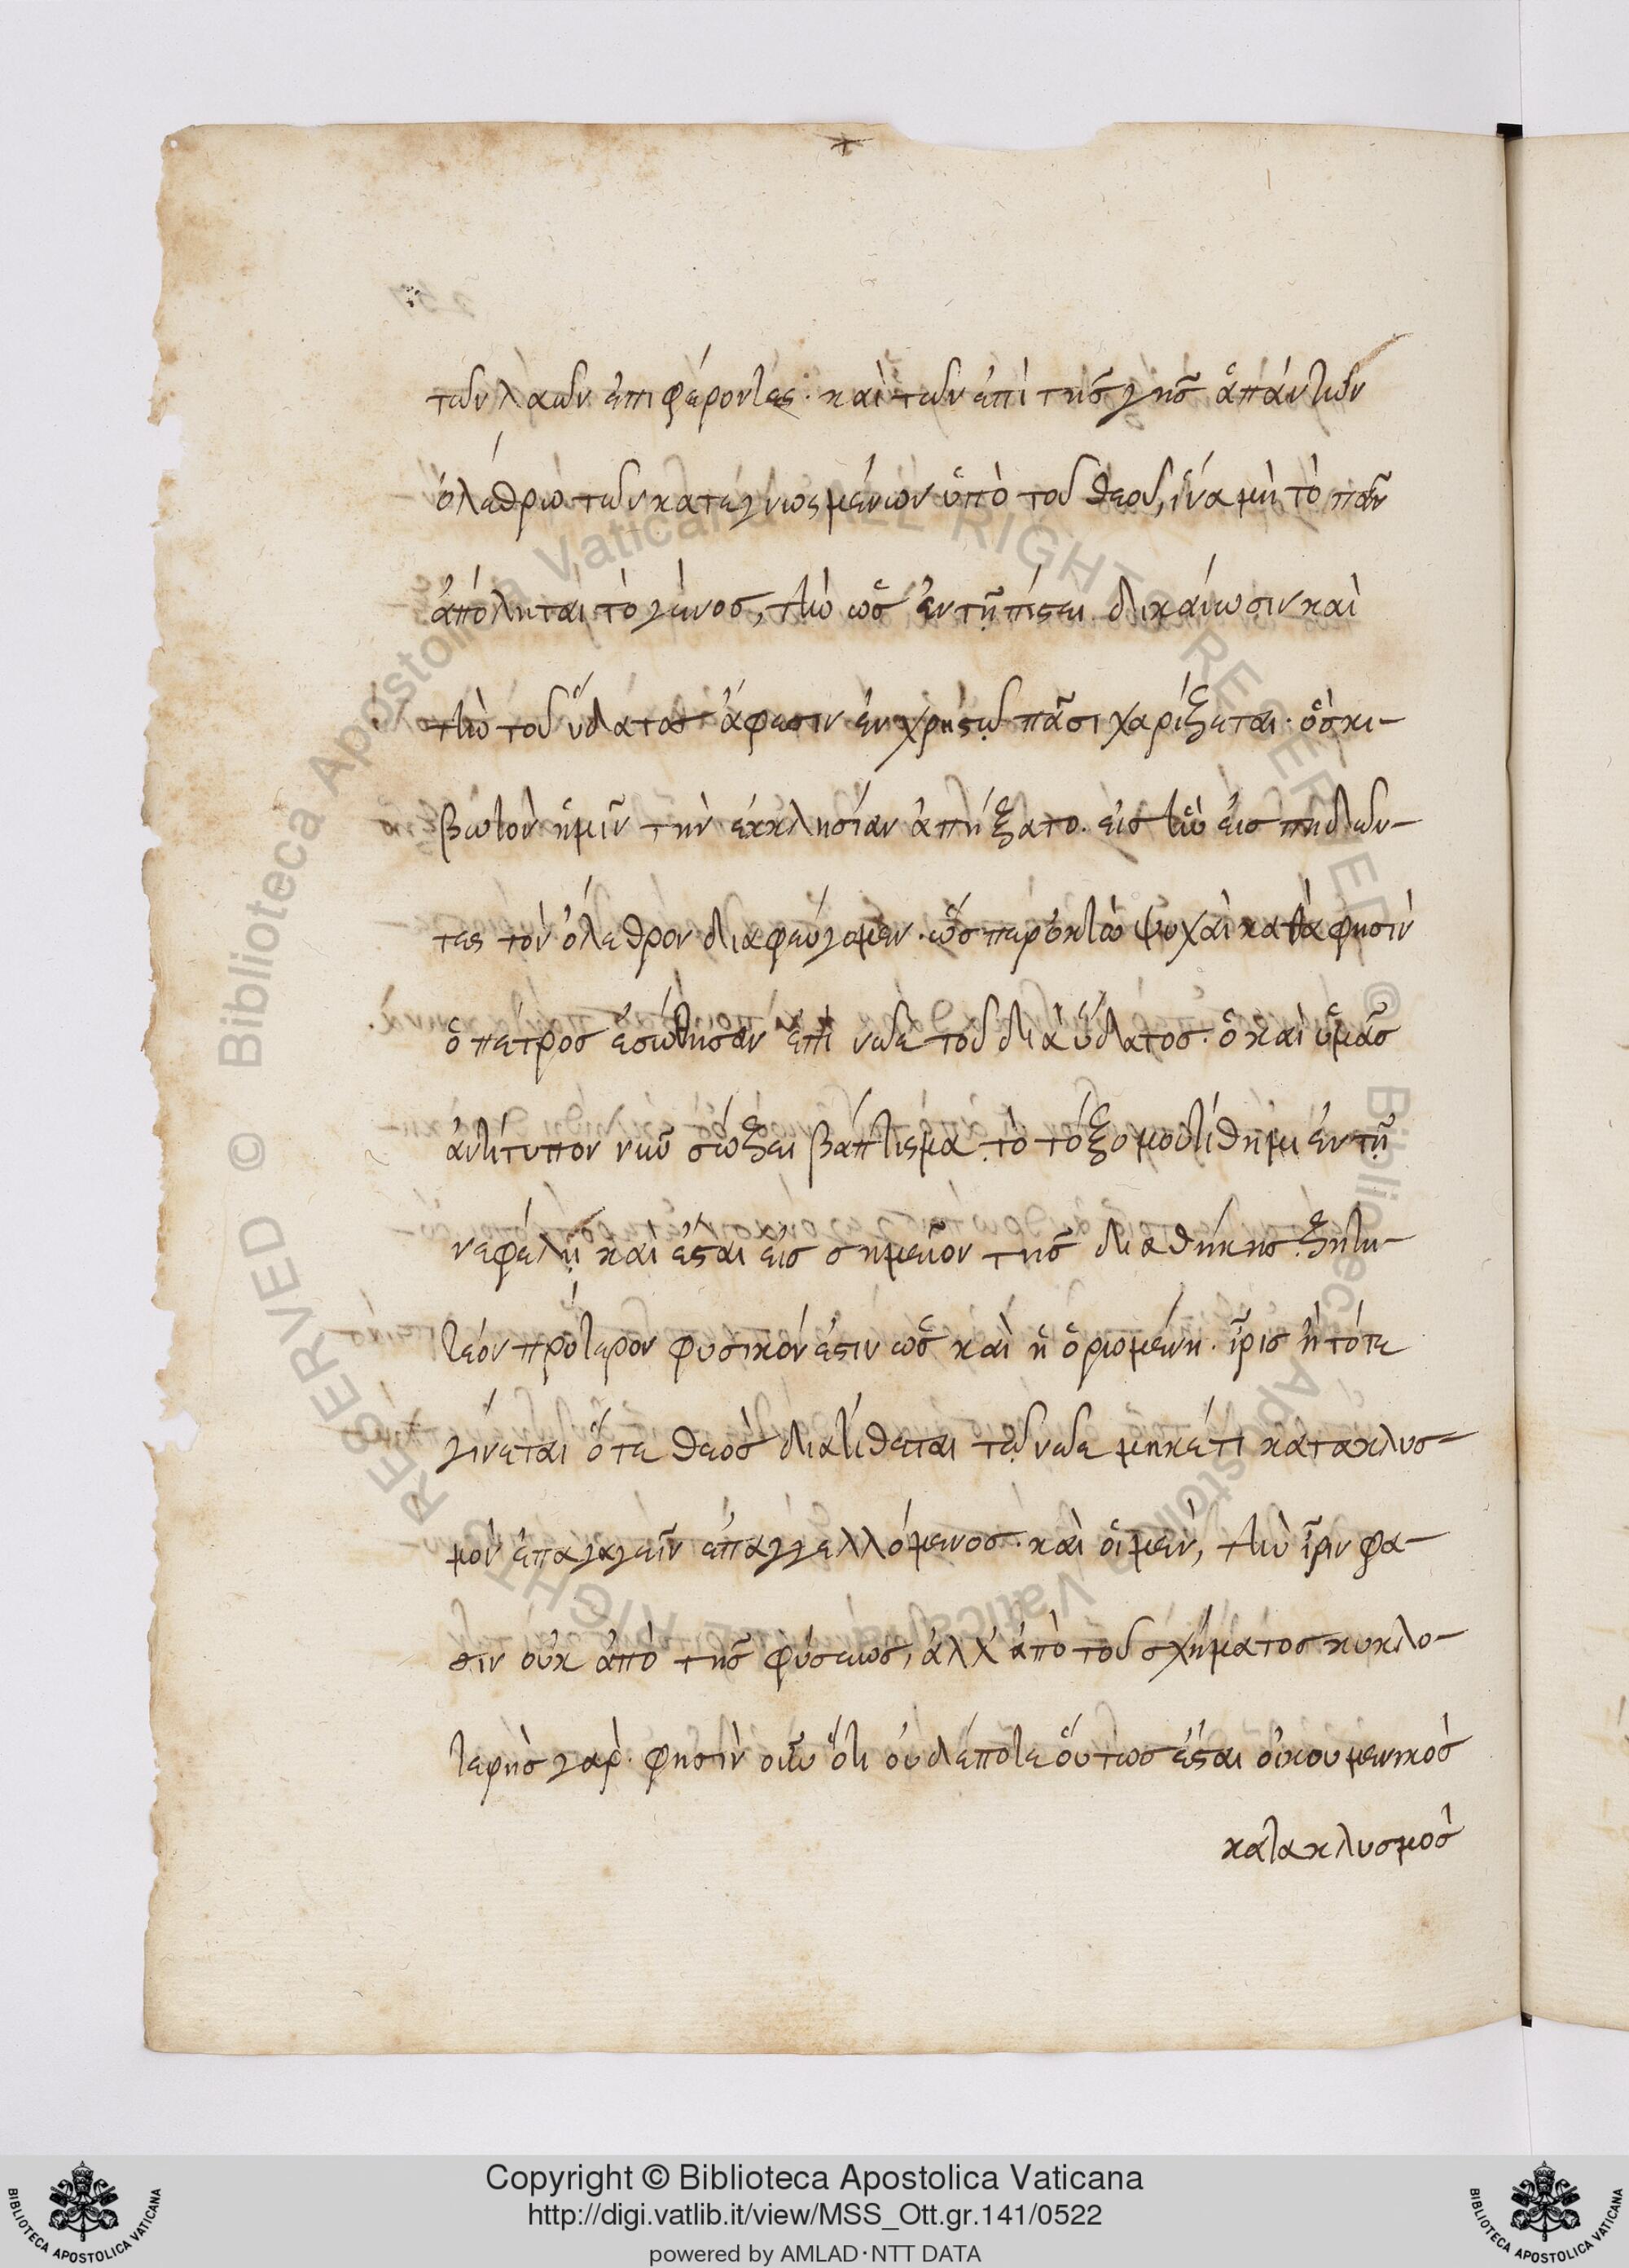 των λαων επιφέροντες· και των επι της γης ἁπάντων
ὀλέθρω των κατεγνωσμένων ὑπὸ του θεου, ἵνα μὴ τὸ παν
ἀπόληται τὸ γένος, την ὡς ἐν τῇ πίστει δικαίωσιν καὶ
την του ὕδατος ἄφεσιν ἐν χρηστω πᾶσι χαρίζεται· ὃς κι-
βωτὸν ἡμῖν τὴν ἐκκλησίαν ἀπήξατο· εἰς ἣν εἰσπηδων-
τες τὸν ὄλεθρον διαφεύγομεν· ὥσπερ ὀκτὼ ψυχαὶ κατά φησιν
ὁ πέτρος ἐσώθησαν ἐπὶ νωε του διὰ ὕδατος· ὃ καὶ ὑμᾶς
ἀντίτυπον νῦν σώζει βάπτισμα· τὸ τόξο μου τίθημι ἐν τῇ
νεφέλῃ καὶ ἔσται εἰς σημεῖον της διαθήκης· ζητη-
τέον πρότερον φυσικόν ἐστιν ὡς καὶ ἡ ὁρωμένη· ἶρις ἢ τότε
γίνεται ὅτε θεὸς διατίθεται τω νωε μηκέτι κατακλυσ-
μὸν ἐπαγαγεῖν ἐπαγγελλόμενος· καὶ οἱ μὲν, την ἶριν φα-
σιν οὐκ ἀπὸ της φύσεως, ἀλλ' ἀπὸ του σχήματος κυκλο-
τερὴς γαρ· φησὶν οὖν ὅτι οὐδέποτε οὕτως ἔσται οἰκουμενικὸς
κατακλυσμὸς
Copyright © Biblioteca Apostolica Vaticana
http://digi.vatlib.it/view/MSS_Ott.gr.141/0522
powered by AMLAD·NTT DATA
BIBLIOTECA APOSTOLICA VATICANA
BIBLIOTECA APOSTOLICA VATICANA